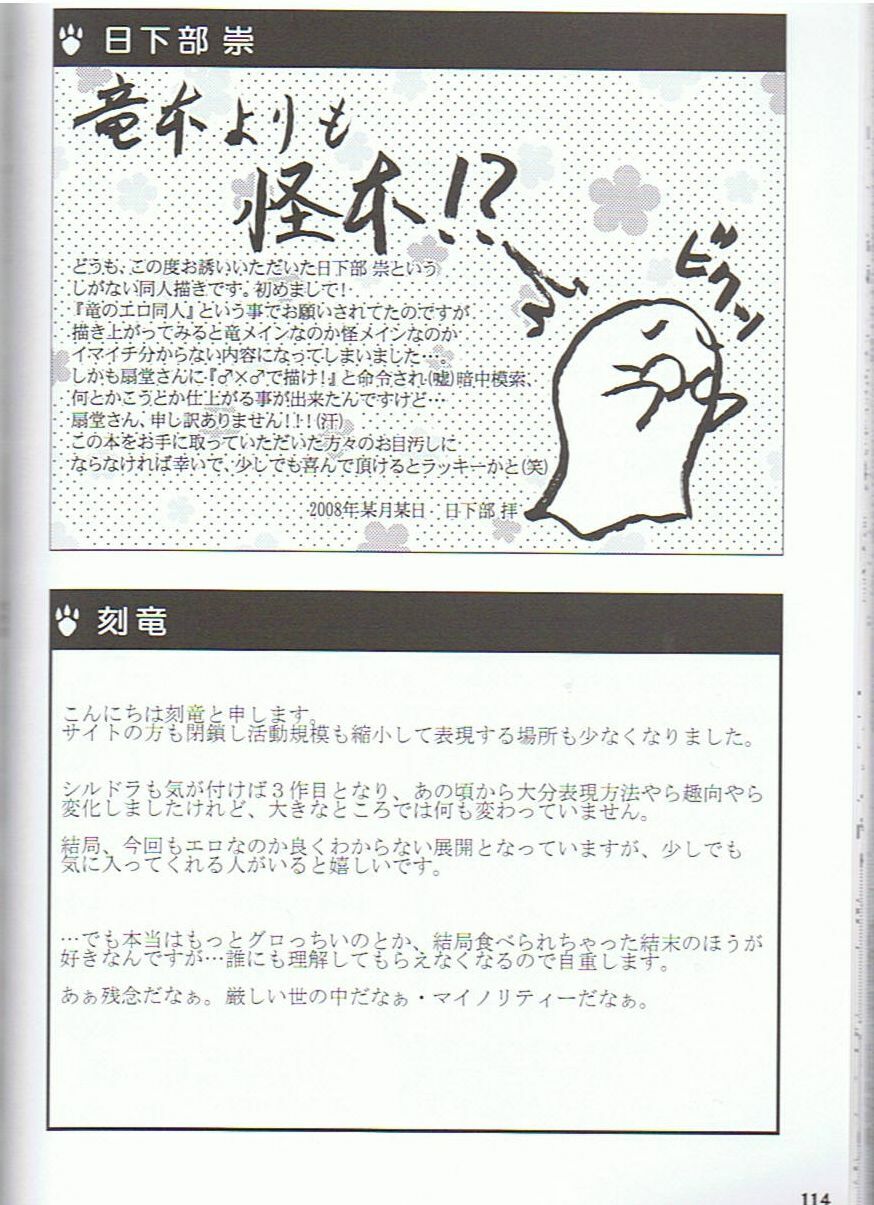 日下部 崇
竜本よりも
怪本!?
ビクン
どうも、この度お誘いいただいた日下部 崇という
しがない同人描きです。初めまして!
『竜のエロ同人』という事でお願いされてたのですが
描き上がってみると竜メインなのか怪メインなのか
イマイチ分からない内容になってしまいました…。
しかも扇堂さんに『♂×♂で描け!』と命令され(嘘)暗中模索、
何とかこうとか仕上がる事が出来たんですけど…
扇堂さん、申し訳ありません!!!(汗)
この本をお手に取っていただいた方々のお目汚しに
ならなければ幸いで、少しでも喜んで頂けるとラッキーかと(笑)
2008年某月某日 日下部 拝
刻竜
こんにちは刻竜と申します。
サイトの方も閉鎖し活動規模も縮小して表現する場所も少なくなりました。
シルドラも気が付けば3作目となり、あの頃から大分表現方法やら趣向やら
変化しましたけれど、大きなところでは何も変わっていません。
結局、今回もエロなのか良くわからない展開となっていますが、少しでも
気に入ってくれる人がいると嬉しいです。
…でも本当はもっとグロっちいのとか、結局食べられちゃった結末のほうが
好きなんですが…誰にも理解してもらえなくなるので自重します。
あぁ残念だなぁ。厳しい世の中だなぁ・マイノリティーだなぁ。
114